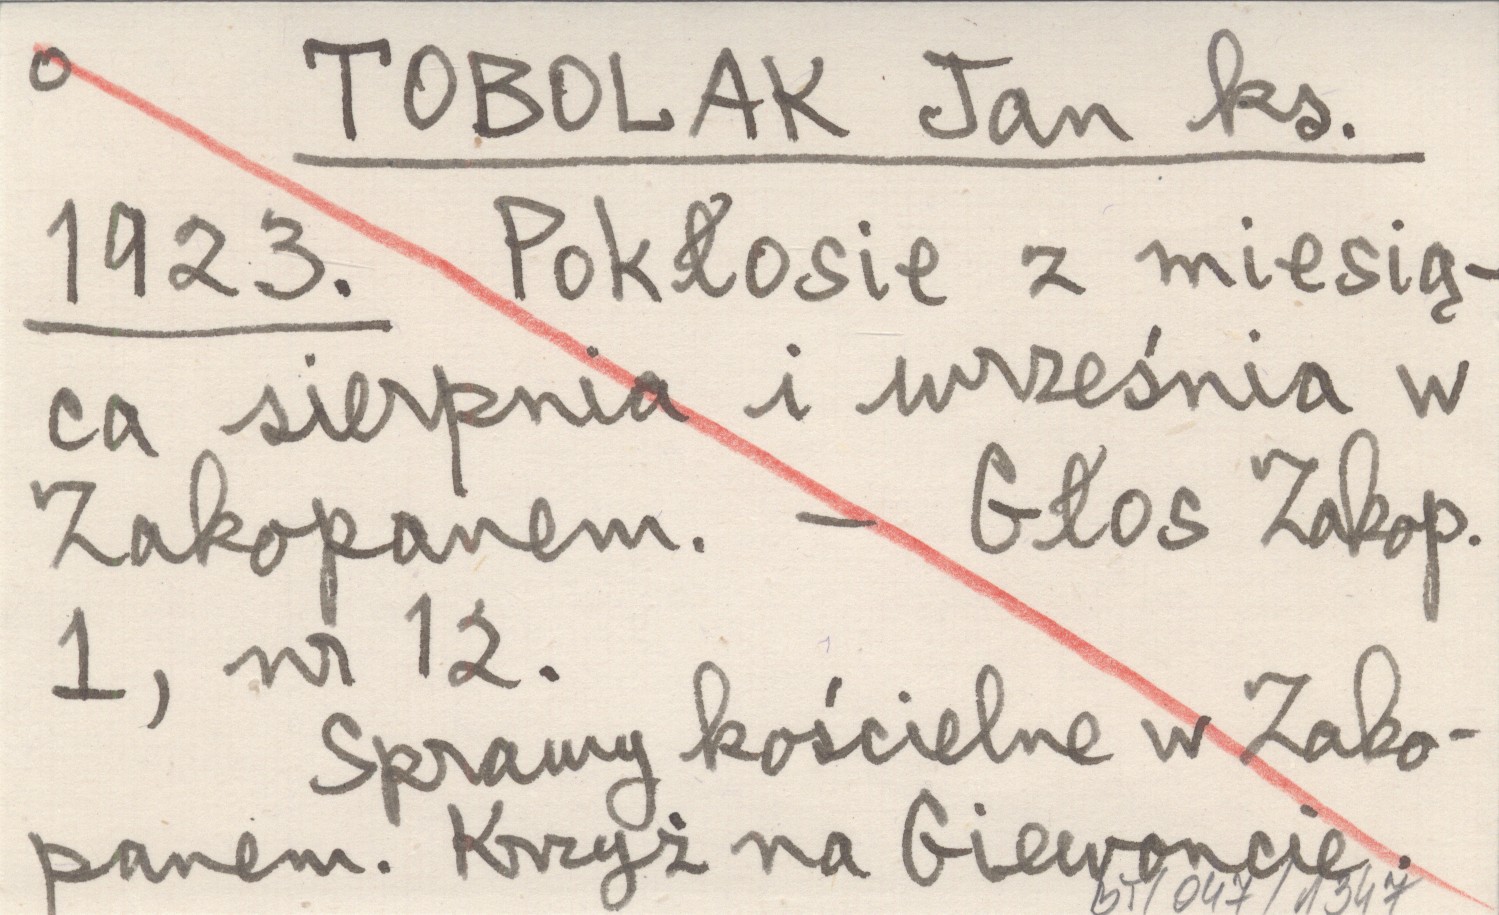 o TOBOLAK Jan ks.
1923. Pokłosie z miesią-
ca sierpnia i września w
Zakopanem. — Głos Zakop.
1, nr 12.
Sprawy kościelne w Zako-
panem. Krzyż na Giewoncie.
/047/1347